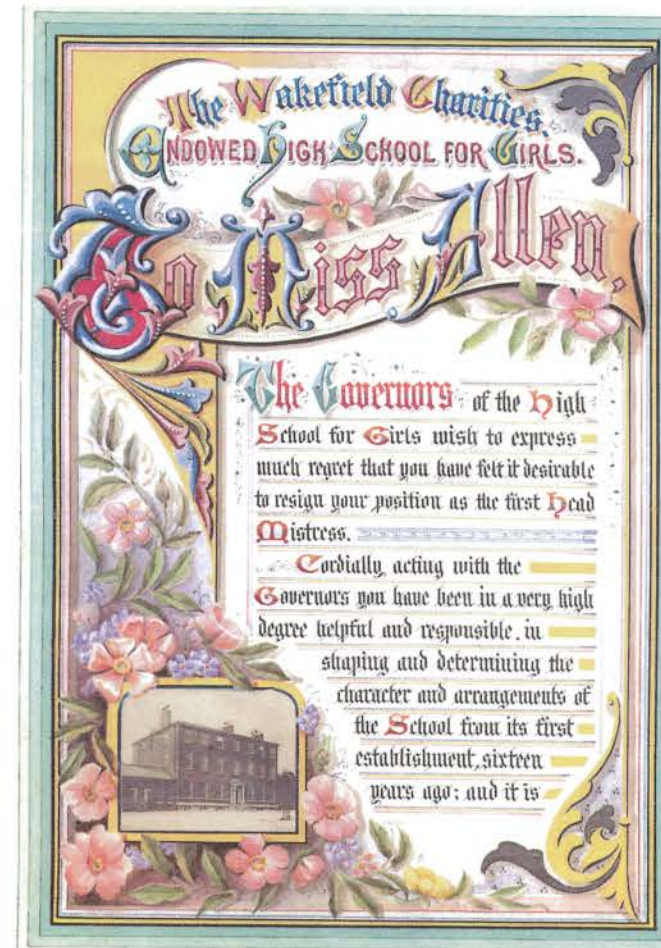 The Wakefield Charities.
ENDOWED HIGH SCHOOL FOR GIRLS.
To Miss Allen,
The Governors of the High
School for Girls wish to express
much regret that you have felt it desirable
to resign your position as the first Head
Mistress.
Cordially acting with the
Governors you have been in a very high
degree helpful and responsible. in
shaping and determining the
character and arrangements of
the School from its first
establishment, sixteen
years ago; and it is